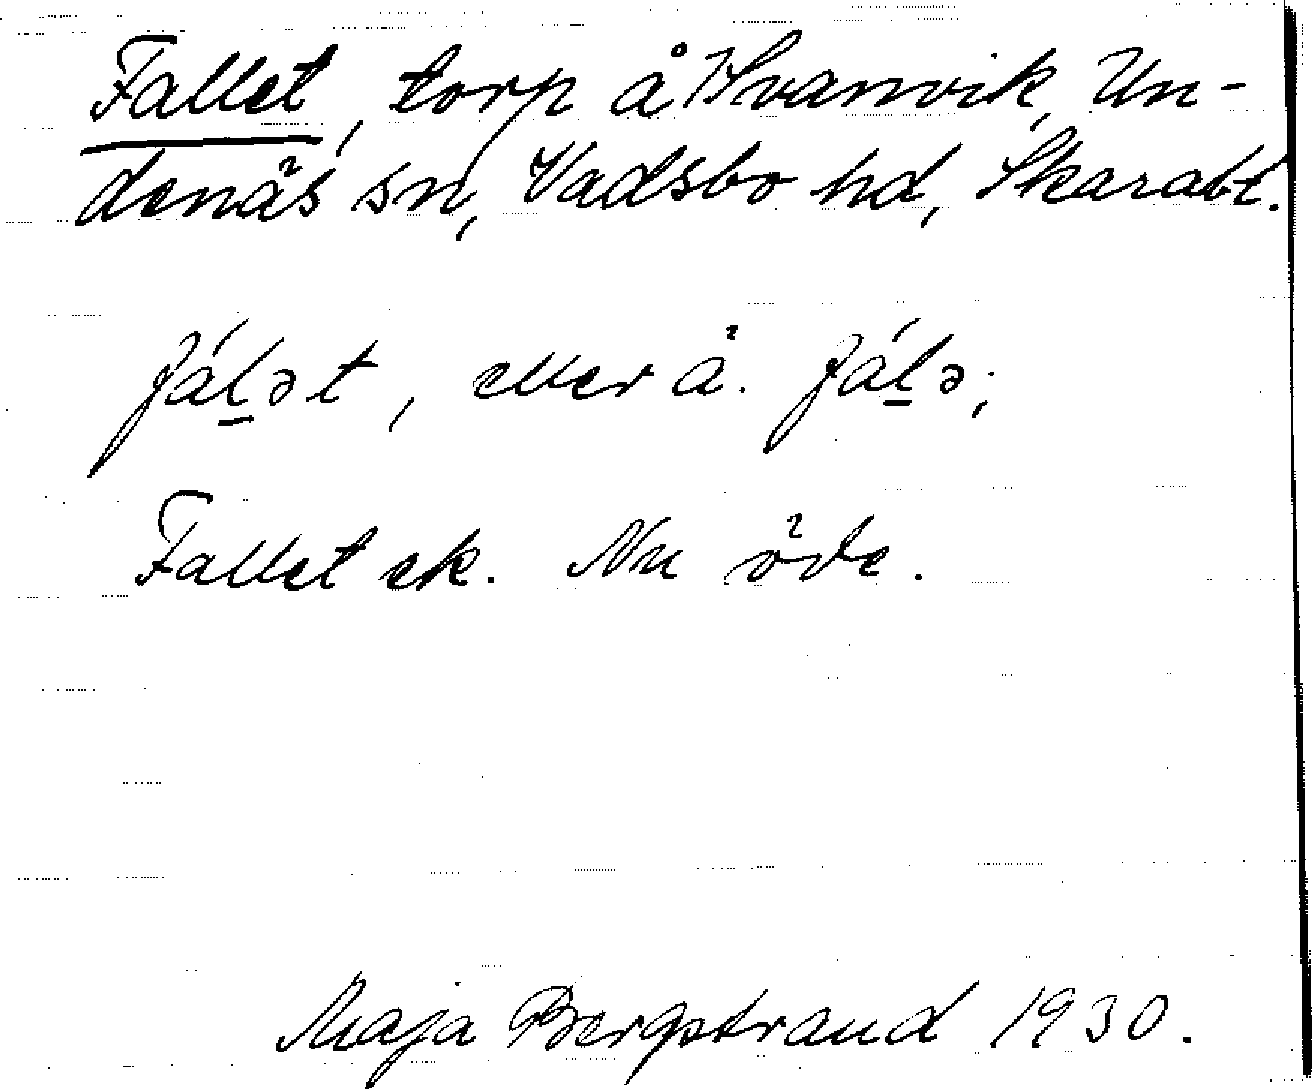 Fallet, torp å Kvarnvik, Un-
denäs sn, Vadsbo hd, Skarabl.
fá̀l̲ət, eller ä. fál̲ə;
Fallet ek. Nu öde.
Maja Bergstrand 1930.